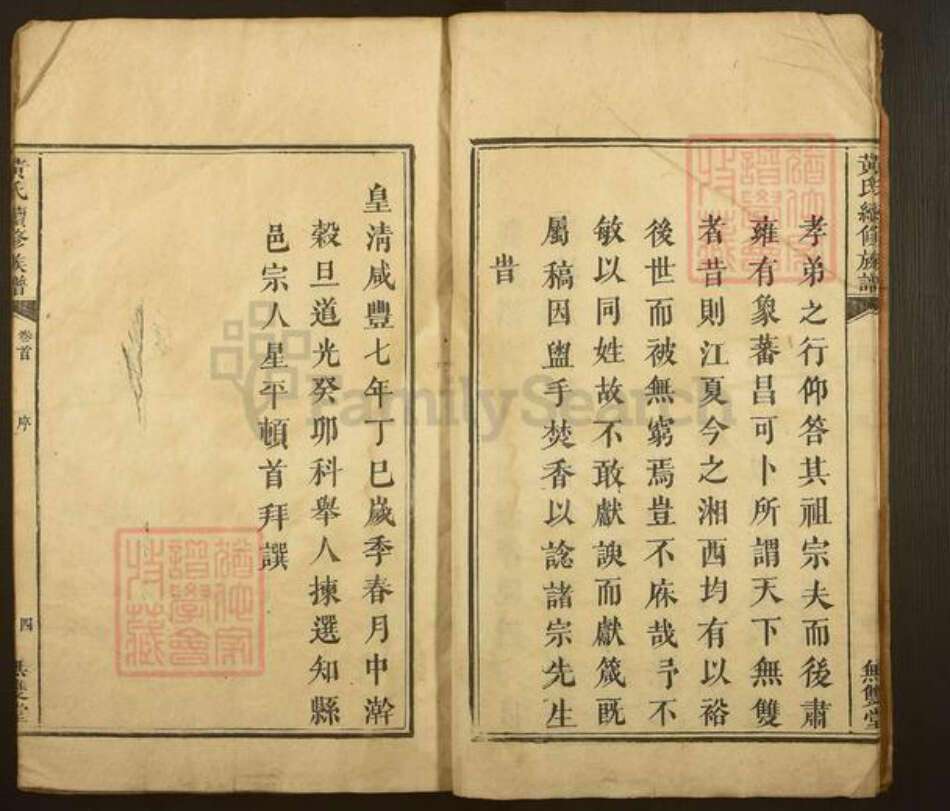 黃氏續修族譜
無雙堂
孝弟之行仰答其祖宗夫而後肅
雍有象蕃昌可卜所謂天下無雙
者昔則江夏今之湘西均有以裕
後世而被無窮焉豈不庥哉予不
敏以同姓故不敢獻諛而獻箴既
屬稿因盥手焚香以諗諸宗先生
旹
皇清咸豐七年丁巳歲季春月中澣
穀旦道光癸卯科舉人揀選知縣
邑宗人星平頓首拜譔
黃氏續修族譜
卷首
序
四
無雙堂
FamilySearch